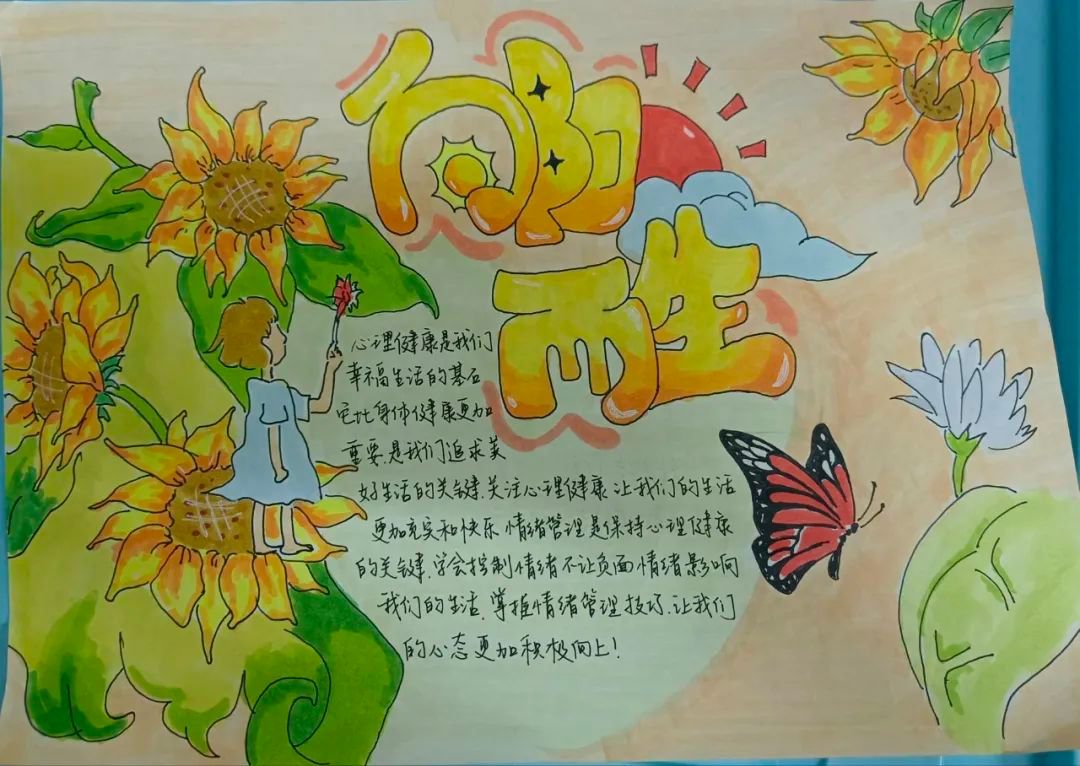 向阳
而生
心理健康是我们
幸福生活的基石
它比身体健康更加
重要.是我们追求美
好生活的关键.关注心理健康.让我们的生活
更加充实和快乐.情绪管理是保持心理健康
的关键.学会控制情绪不让负面情绪影响
我们的生活.掌握情绪管理技巧.让我们
的心态更加积极向上!